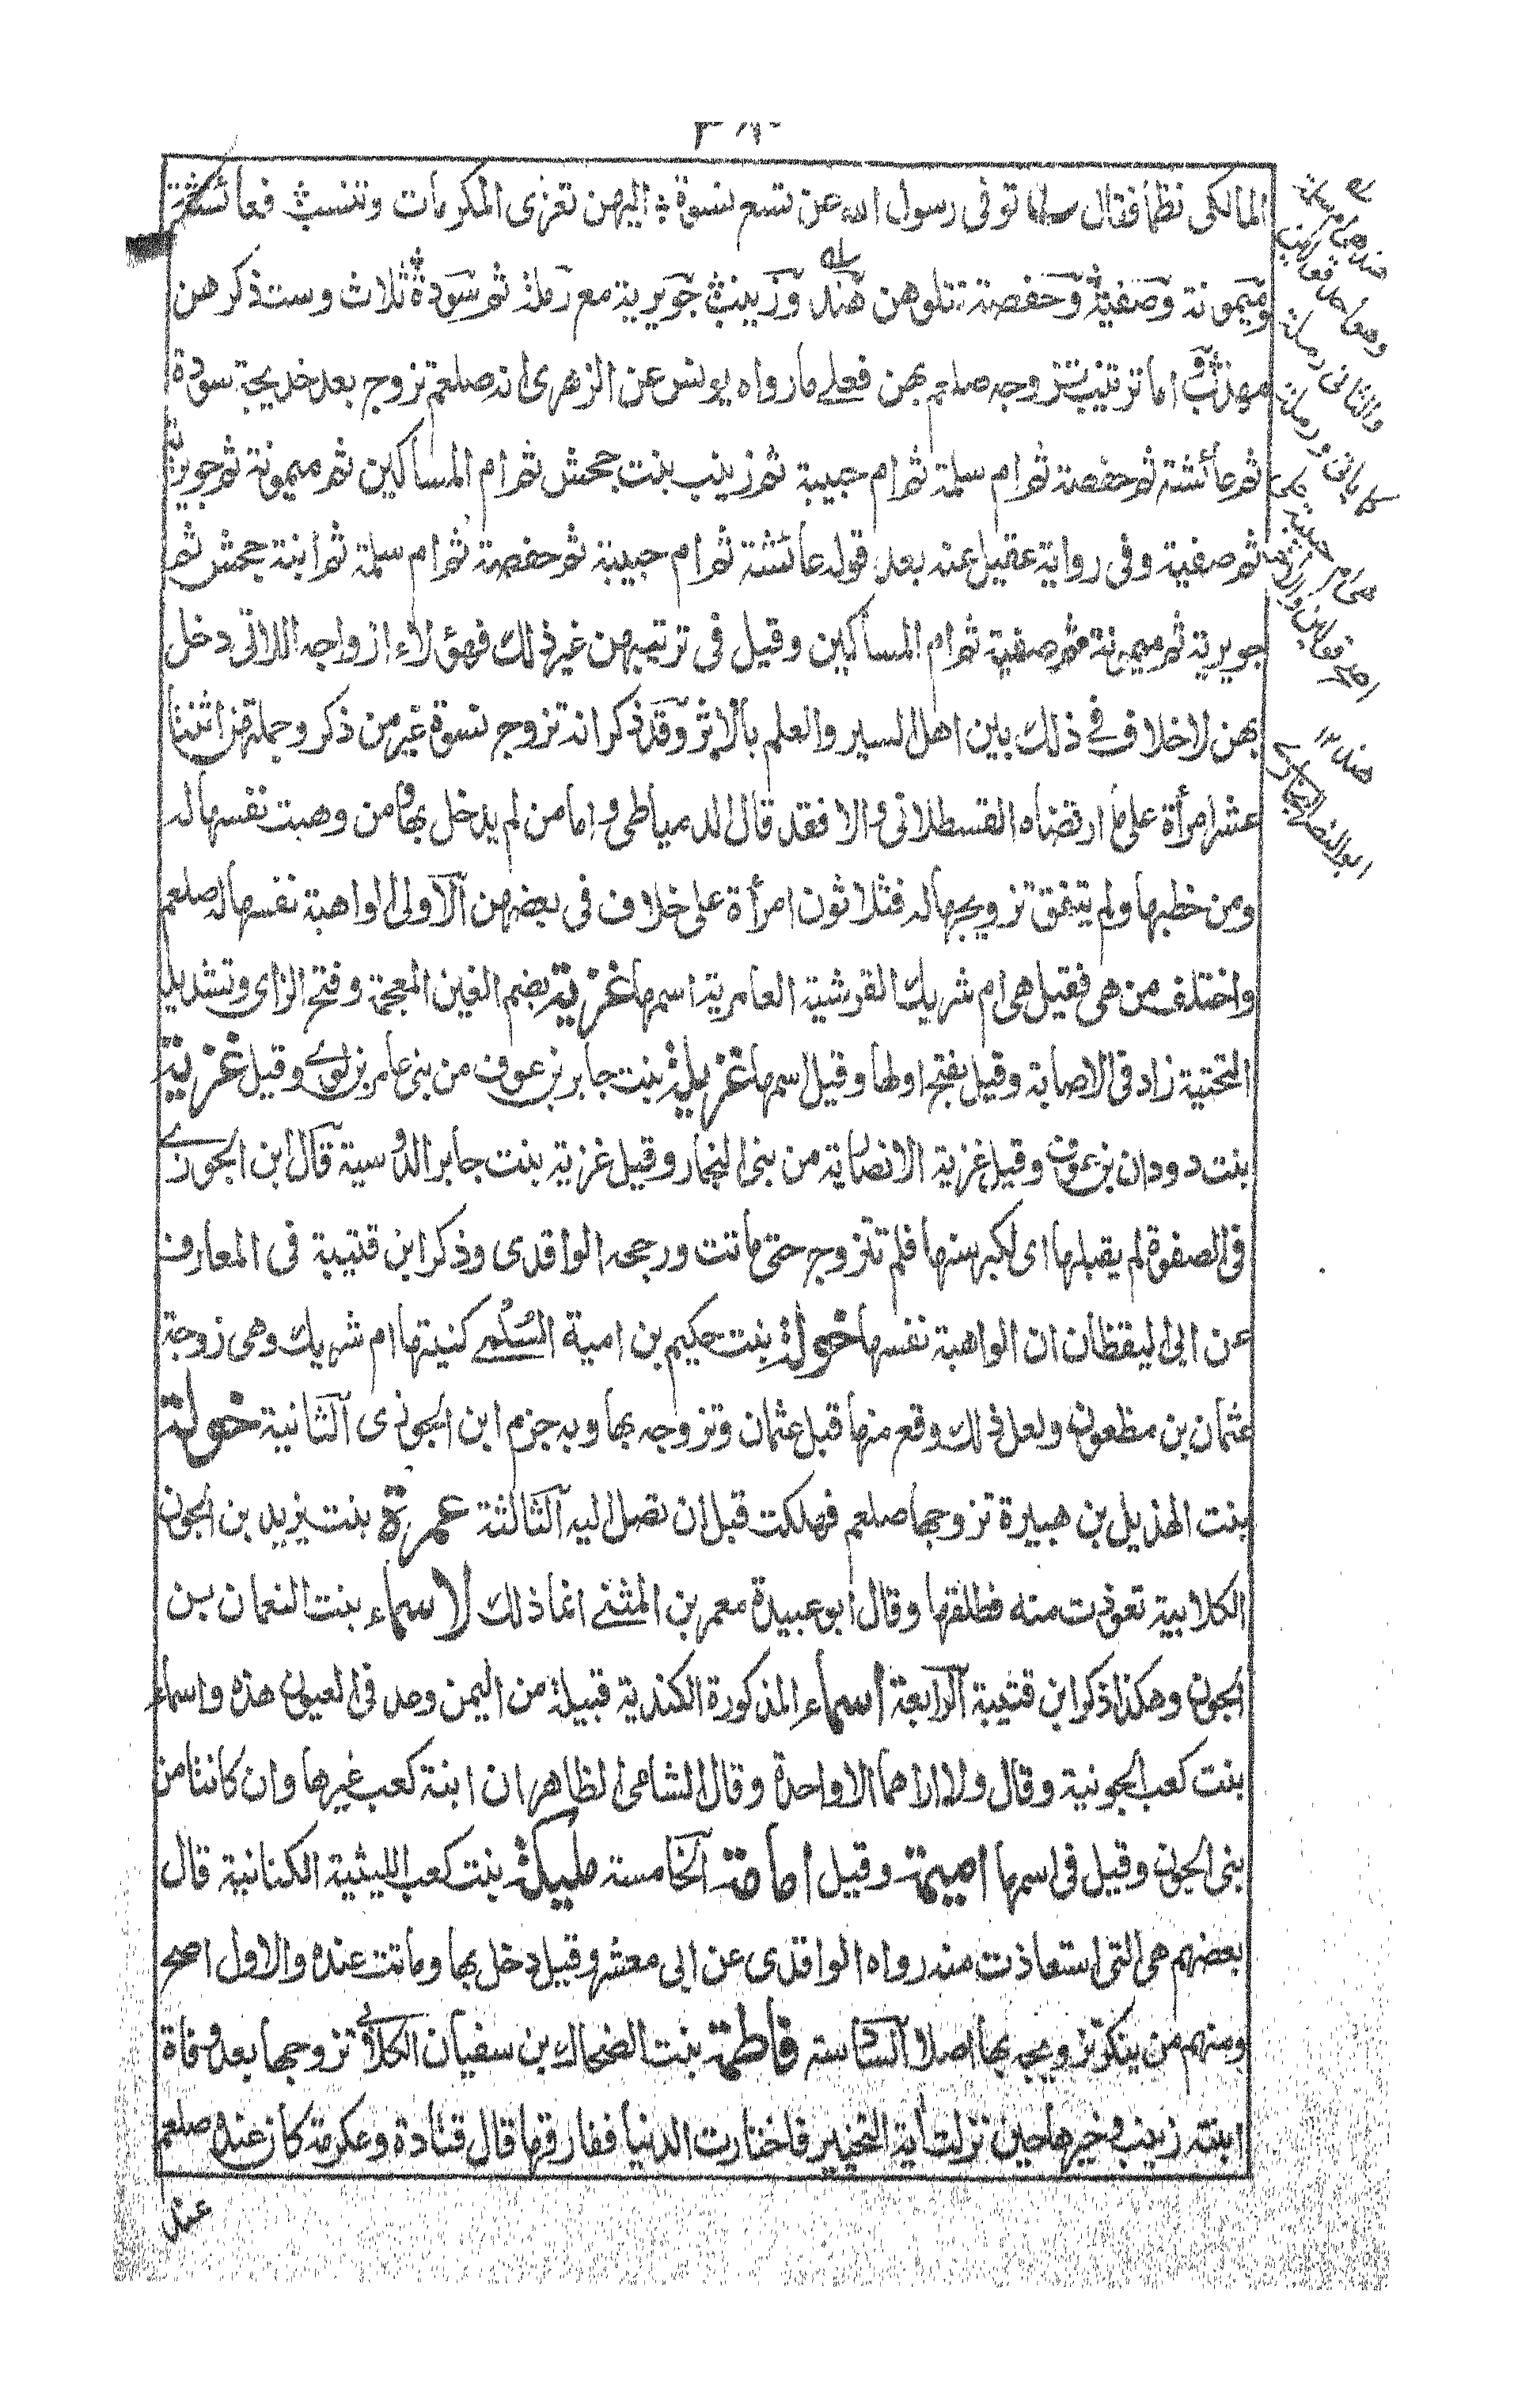 المالكي نظما فقال سلما توفى رسول الله عن تسع نسوة ؛ اليهن تعزى المكرمات وتنسب فعائشة
وميمونة وصفية وحفصة تتلوهن هند وزينب جويرية مع رملة ثم سودة ثلاث وست ذكرهن
مهذب اما ترتيب تزوجه صلعم بهن فعلى مارواه يونس عن الزهرى انه صلعم تزوج بعد خديجة سودة
ثم عائشة ثم حفصة ثم ام سلمة ثم ام حبيبة ثم زينب بنت جحش ثم ام المساكين ثم ميمونة ثم جويرية
ثم صفية وفى رواية عقيل عنه بعد قوله عائشة ثم ام حبيبة ثم حفصة ثم ام سلمة ثم ابنة جحش ثم
جويرية ثم ميمونة ثم صفية ثم ام المساكين وقيل فى ترتيبهن غير ذلك فهؤلاء ازواجه اللاتى دخل
بهن لاخلاف فى ذلك بين اهل السير والعلم بالاثر وقد ذكر انه تزوج نسوة غير من ذكر وجملتهن اثنتا
عشر امرأة على ما ارتضاه القسطلانى والا فقد قال الدمياطى واما من لم يدخل بها ومن وهبت نفسها له
ومن خطبها ولم يتفق تزويجها له فثلاثون امرأة على خلاف فى بعضهن الاولى الواهبة نفسها له صلعم
واختلف من هى فقيل هى ام شريك القرشية العامرية اسمها غزية بضم الغين المعجمة وفتح الزاى وتشديد
التحتية زاد فى الاصابة وقيل بفتح اولها وقيل اسمها غزيلة بنت جابر بن عوف من بنى عامر بن لوى وقيل غزية
بنت دودان بن عوف وقيل غزية الانصارية من بنى النجار وقيل غزية بنت جابر الدوسية قال ابن الجوزى
فى الصفوة لم يقبلها اى لكبر سنها فلم تتزوج حتى ماتت ورجحه الواقدى وذكر ابن قتيبة فى المعارف
عن ابى اليقظان ان الواهبة نفسها خولة بنت حكيم بن امية السلمى كنيتها ام شريك وهى زوجة
عثمان بن مظعون ولعل ذلك وقع منها قبل عثمان وتزوجه بها وبه جزم ابن الجوزى الثانية خولة
بنت الهذيل بن هبيرة تزوجها صلعم فهلكت قبل ان تصل اليه الثالثة عمرة بنت يزيد بن الجون
الكلابية تعوذت منه فطلقها وقال ابو عبيدة معمر بن المثنى انما ذلك لاسماء بنت النعمان بن
الجون وهكذا ذكر ابن قتيبة الرابعة اسماء المذكورة الكندية قبيلة من اليمن وعد فى العيون هذه واسماء
بنت كعب الجونية وقال ولا اراهما الا واحدة وقال الشامى الظاهر ان ابنة كعب غيرها وان كانتا من
بنى الجون وقيل فى اسمها اميمة وقيل امامة الخامسة مليكة بنت كعب الليثية الكنانية قال
بعضهم هى التى استعاذت منه رواه الواقدى عن ابى معشر وقيل دخل بها وماتت عنده والاول اصح
ومنهم من ينكر تزويجه بها اصلا السادسة فاطمة بنت الضحاك بن سفيان الكلابى تزوجها بعد وفاة
ابنته زينب وخيرها حين نزلت اية التخيير فاختارت الدنيا ففارقها قال قتادة وعكرمة كان عنده صلعم
عند